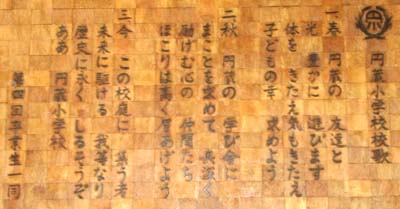 円蔵小学校校歌
一 春 円蔵の 友達と
光 豊かに 遊びます
体を きたえ 気もきたえ
子どもの幸 求めよう
二 秋 円蔵の 学び舎に
まことを求めて 真深く
励げむ心の 仲間たち
ほこりは高く 眉あげよう
三 今 この校庭に 集う者
未来に駆ける 我等なり
歴史に永く しるそうぞ
ああ 円蔵小学校
第四回卒業生一同